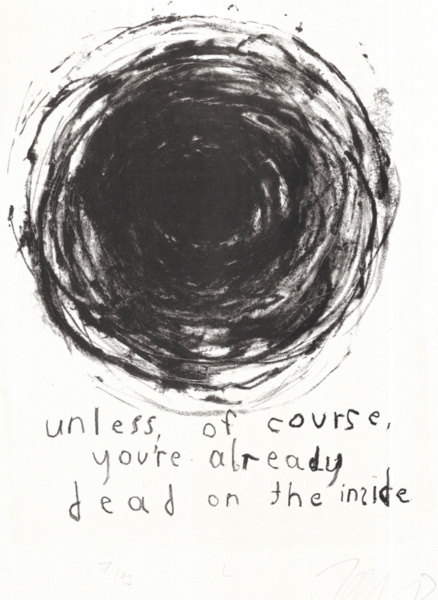 unless, of course,
you're already
dead on the inside
7/12 L